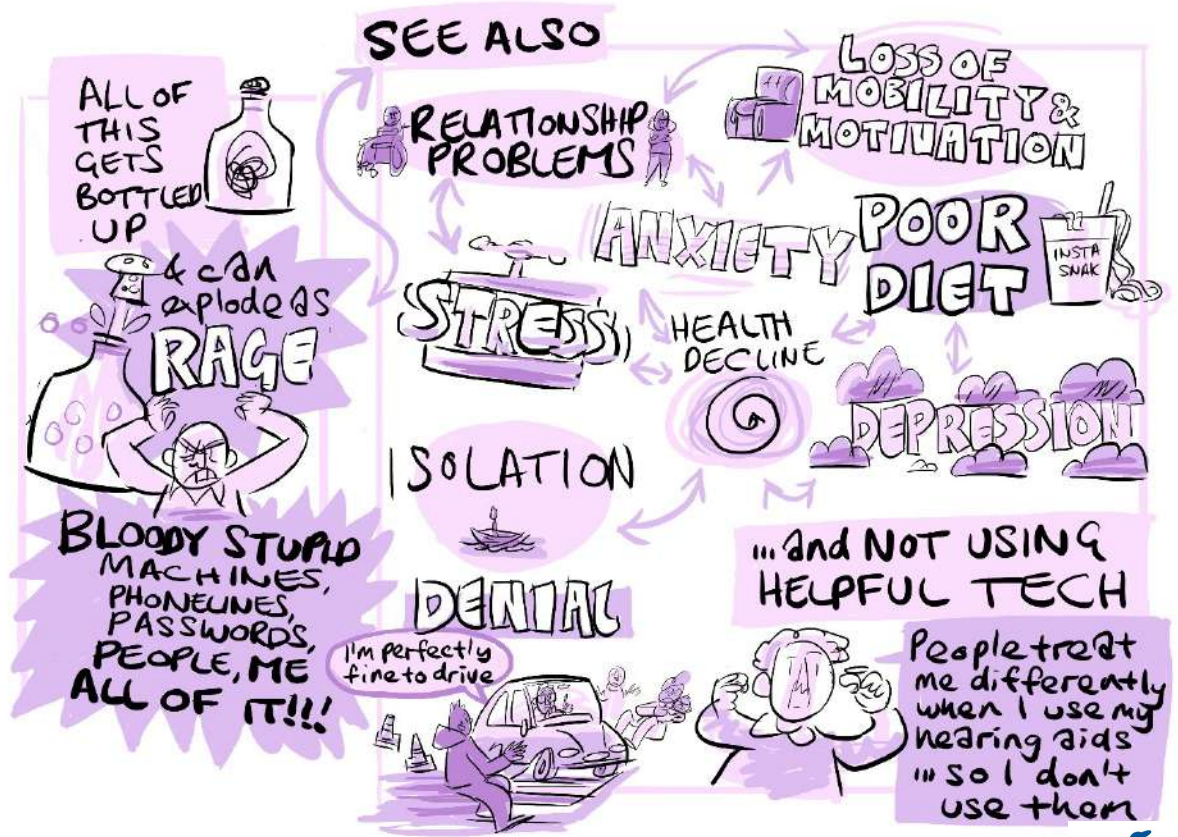 ALL OF
THIS
GETS
BOTTLED
UP
& can
explode as
RAGE
BLOODY STUPID
MACHINES,
PHONELINES,
PASSWORDS,
PEOPLE, ME
ALL OF IT!!!
SEE ALSO
RELATIONSHIP
PROBLEMS
LOSS OF
MOBILITY &
MOTIVATION
ANXIETY
POOR
DIET
INSTA
SNAK
STRESS
HEALTH
DECLINE
DEPRESSION
ISOLATION
DENIAL
I'm perfectly
fine to drive
...and NOT USING
HELPFUL TECH
People treat
me differently
when I use my
hearing aids
... so I don't
use them